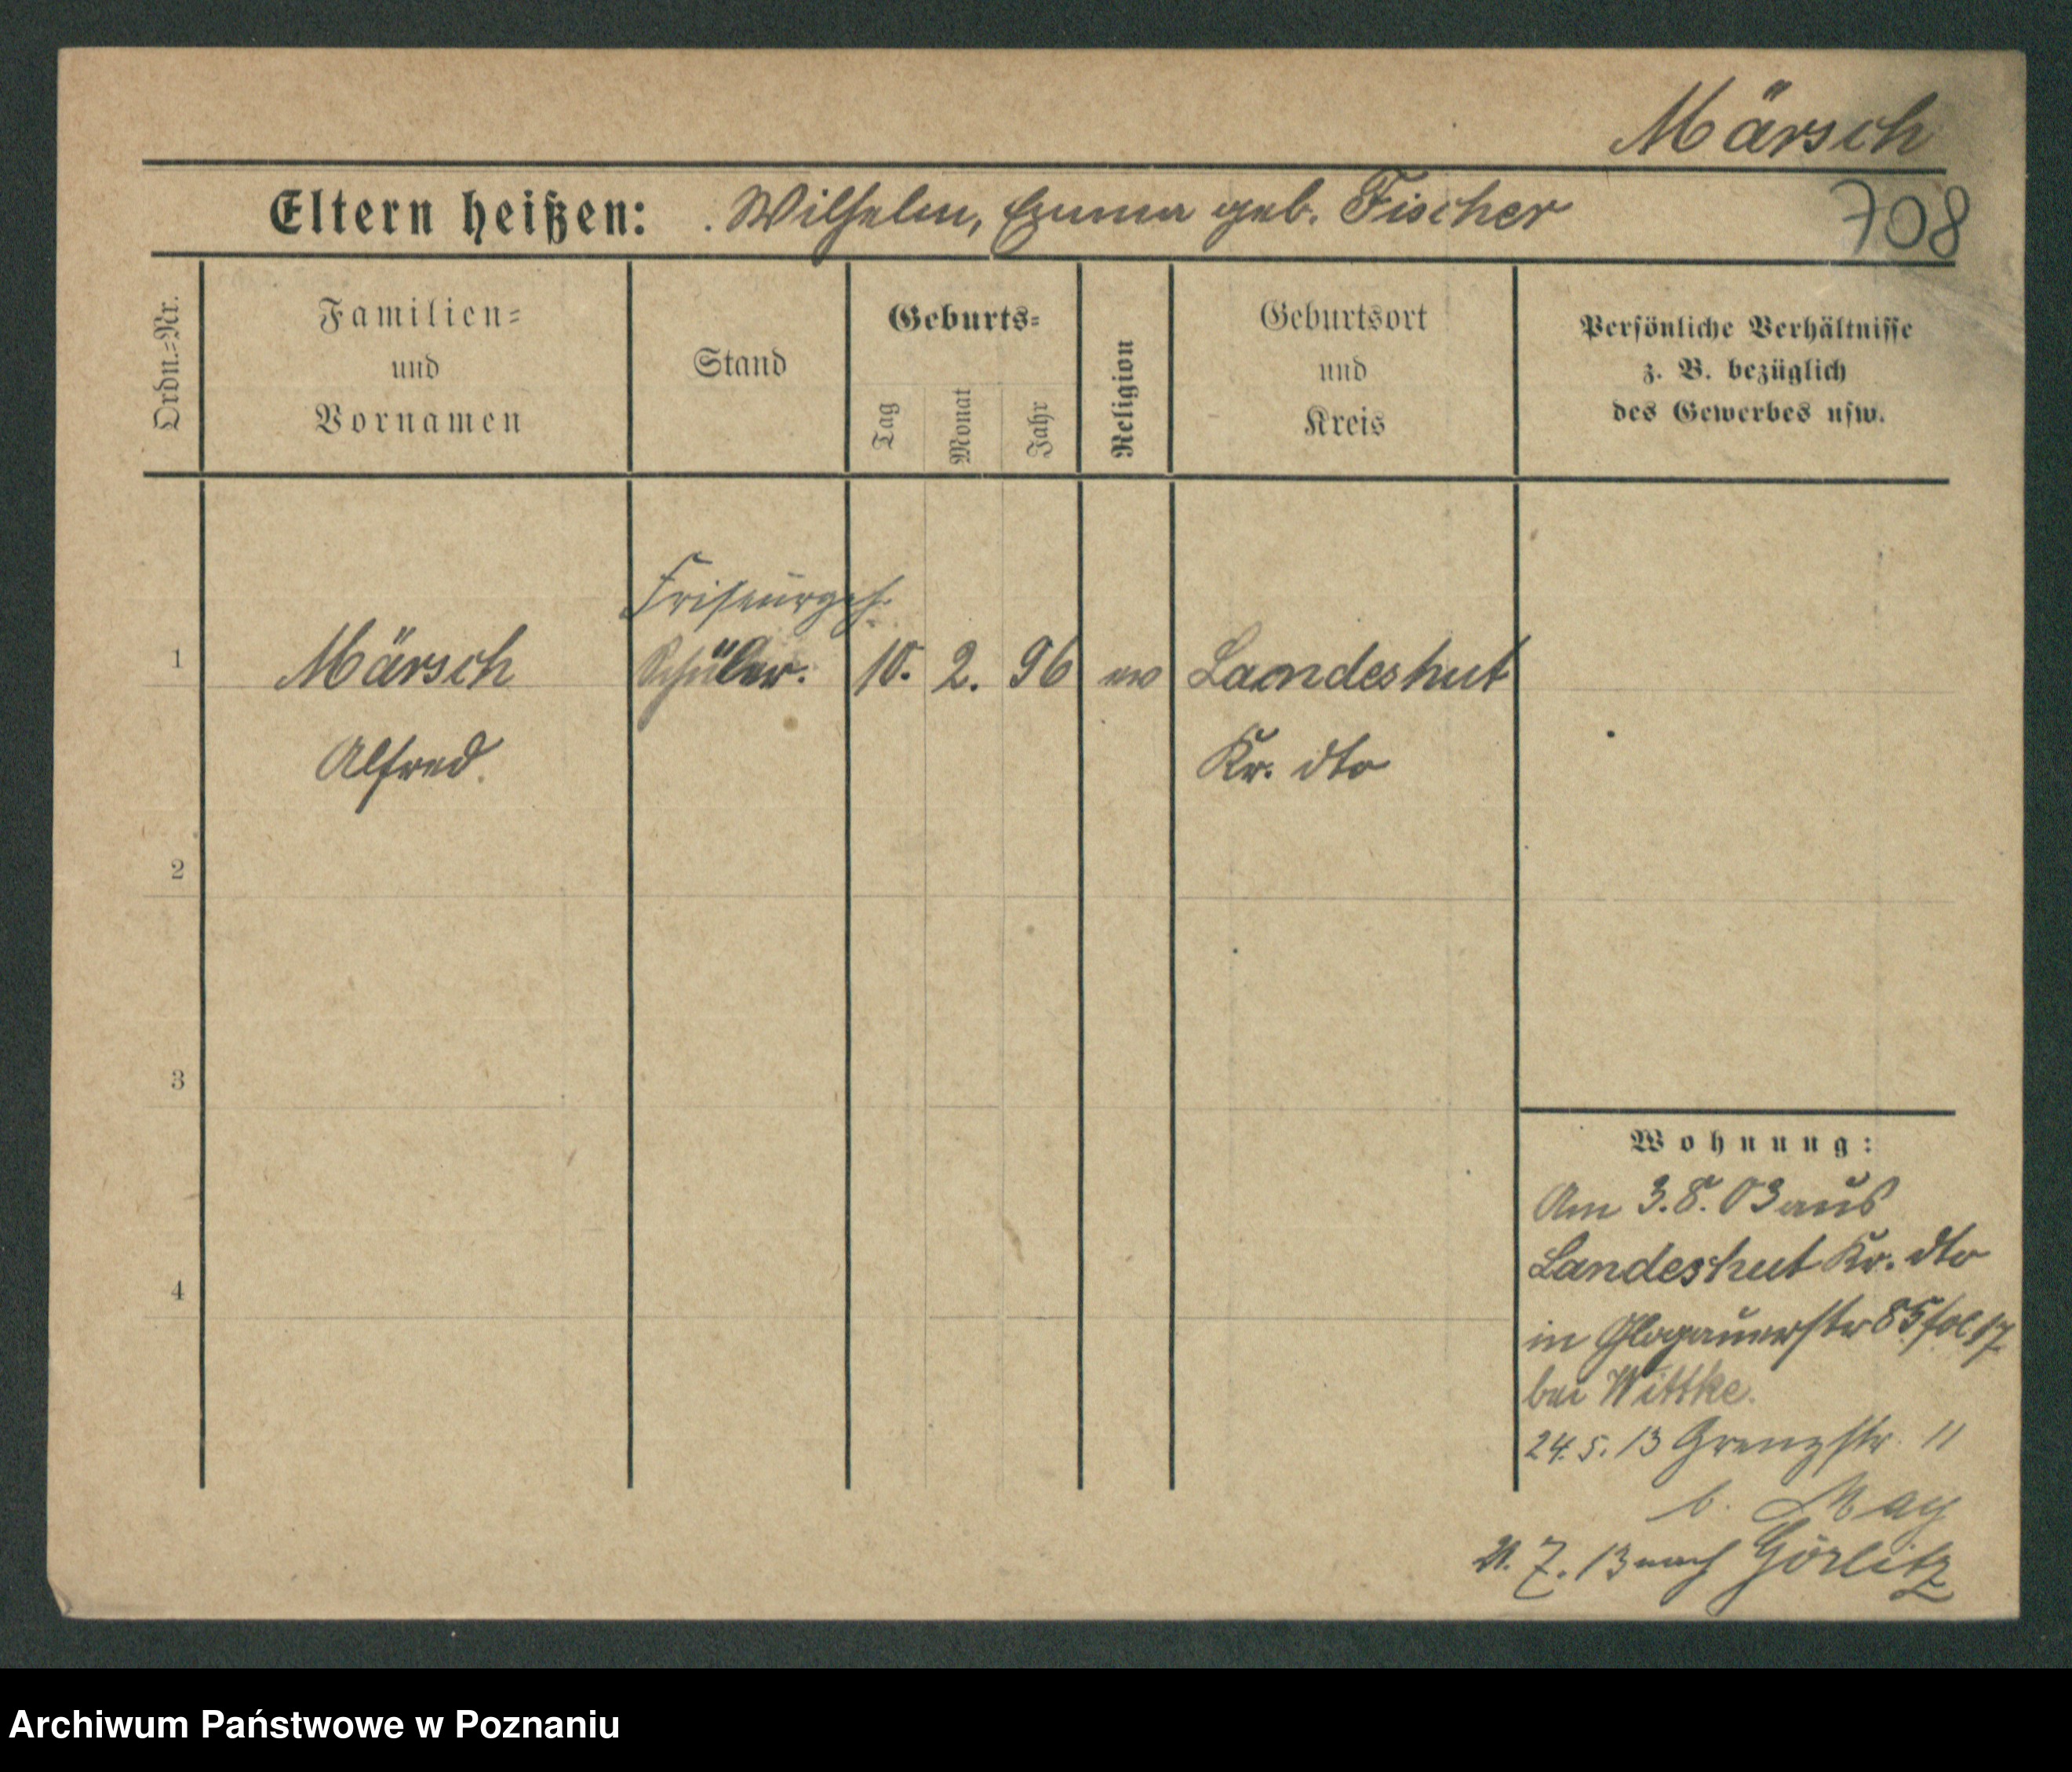 Märsch
Eltern heißen: Wilhelm, Emma geb. Fischer
708
Ordn.=Nr.
Familien=
und
Vornamen
Stand
Geburts=
Tag
Monat
Jahr
Religion
Geburtsort
und
Kreis
Persönliche Verhältnisse
z. B. bezüglich
des Gewerbes usw.
Friseurgeh.
1 Märsch Schüler. 10. 2. 96 ev Landeshut
Alfred. Kr. dto
2
3
4
Wohnung:
Am 3.8.03 aus
Landeshut Kr. dto
in Glogauerstr 85 fol 17
bei Wittke.
24.5.13 Grenzstr. 11
b. May
7. 13 nach Görlitz
Archiwum Państwowe w Poznaniu